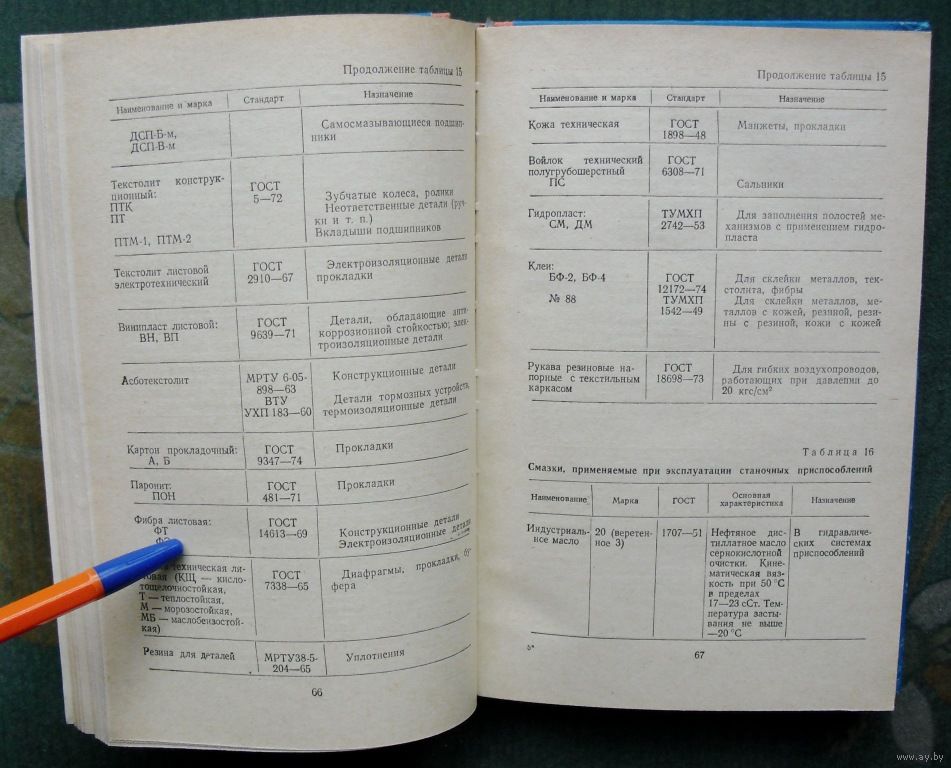 Продолжение таблицы 15
Наименование и марка Стандарт Назначение
ДСП-Б-м, Самосмазывающиеся подшип-
ДСП-В-м ники
Текстолит конструк-
ционный: ГОСТ
ПТК 5—72 Зубчатые колеса, ролики
ПТ Неответственные детали (руч-
ки и т. п.)
ПТМ-1, ПТМ-2 Вкладыши подшипников
Текстолит листовой ГОСТ Электроизоляционные детали
электротехнический 2910—67 прокладки
Винипласт листовой: ГОСТ Детали, обладающие анти-
ВН, ВП 9639—71 коррозионной стойкостью; элек-
троизоляционные детали
Асботекстолит МРТУ 6-05- Конструкционные детали
898—63
ВТУ Детали тормозных устройств,
УХП 183—60 термоизоляционные детали
Картон прокладочный: ГОСТ Прокладки
А, Б 9347—74
Паронит: ГОСТ Прокладки
ПОН 481—71
Фибра листовая: ГОСТ
ФТ 14613—69 Конструкционные детали
Электроизоляционные детали
техническая ли- ГОСТ Диафрагмы, прокладки, бу-
товая (КЩ — кисло- 7338—65 фера
тощелочностойкая,
Т — теплостойкая,
М — морозостойкая,
МБ — маслобензостой-
кая)
Резина для деталей МРТУ38-5- Уплотнения
204—65
66
Продолжение таблицы 15
Наименование и марка Стандарт Назначение
Кожа техническая ГОСТ Манжеты, прокладки
1898—48
Войлок технический ГОСТ
полугрубошерстный 6308—71
ПС Сальники
Гидропласт: ТУМХП Для заполнения полостей ме-
СМ, ДМ 2742—53 ханизмов с применением гидро-
пласта
Клеи:
БФ-2, БФ-4 ГОСТ Для склейки металлов, тек-
12172—74 столита, фибры
№ 88 ТУМХП Для склейки металлов, ме-
1542—49 таллов с кожей, резиной, рези-
ны с резиной, кожи с кожей
Рукава резиновые на- ГОСТ Для гибких воздухопроводов,
порные с текстильным 18698—73 работающих при давлении до
каркасом 20 кгс/см²
Таблица 16
Смазки, применяемые при эксплуатации станочных приспособлений
Наименование Марка ГОСТ Основная характеристика Назначение
Индустриаль- 20 (веретен- 1707—51 Нефтяное дис- В гидравличе-
ное масло ное 3) тиллатное масло ских системах
сернокислотной приспособлений
очистки. Кине-
матическая вяз-
кость при 50 °С
в пределах
17—23 сСт. Тем-
пература засты-
вания не выше
—20 °С
5*
67
www.ay.by